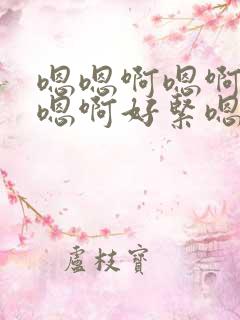 嗯嗯啊嗯啊
嗯啊好緊嗯
盧枝寶